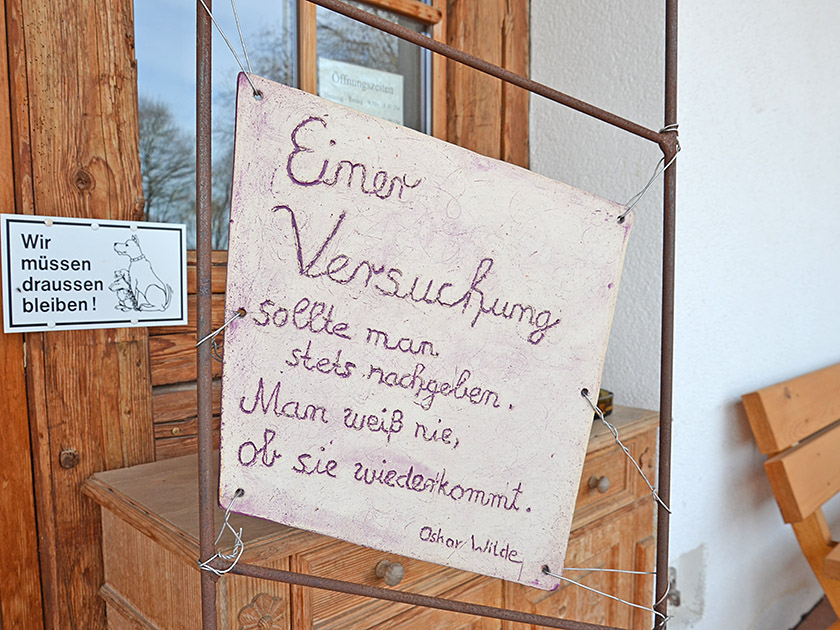 Öffnungszeiten
Wir
müssen
draussen
bleiben !
Einer
Versuchung
sollte man
stets nachgeben.
Man weiß nie,
ob sie wiederkommt.
Oskar Wilde